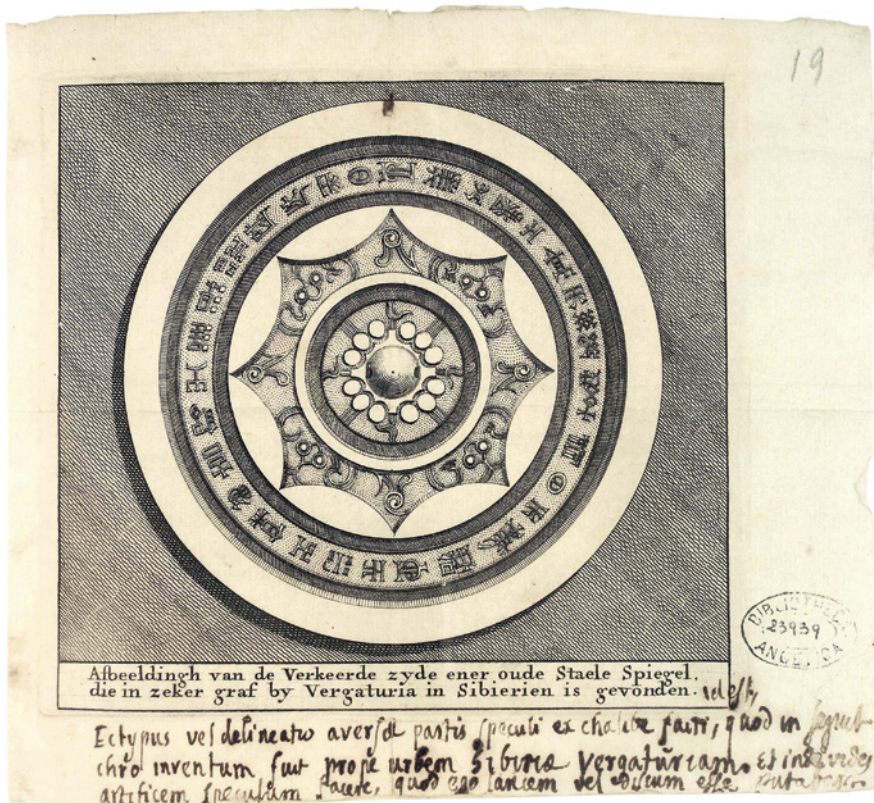 19
BIBLIOTHECA
23939
ANGELICA
Afbeeldingh van de Verkeerde zyde ener oude Staele Spiegel,
die in zeker graf by Vergaturia in Sibierien is gevonden. id est,
Ectypus vel delineatio aversae partis speculi ex chalibe facti, quod in sepul
chro inventum fuit prope urbem Sibiriae Vergaturiam. Et
artificem speculum facere, quod ego lancem vel discum esse